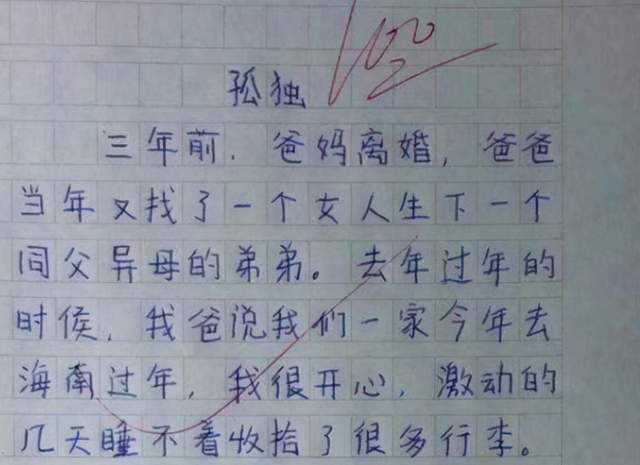 100
孤独
三年前，爸妈离婚，爸爸
当年又找了一个女人生下一个
同父异母的弟弟。去年过年的
时侯，我爸说我们一家今年去
海南过年，我很开心，激动的
几天睡不着收拾了很多行李。